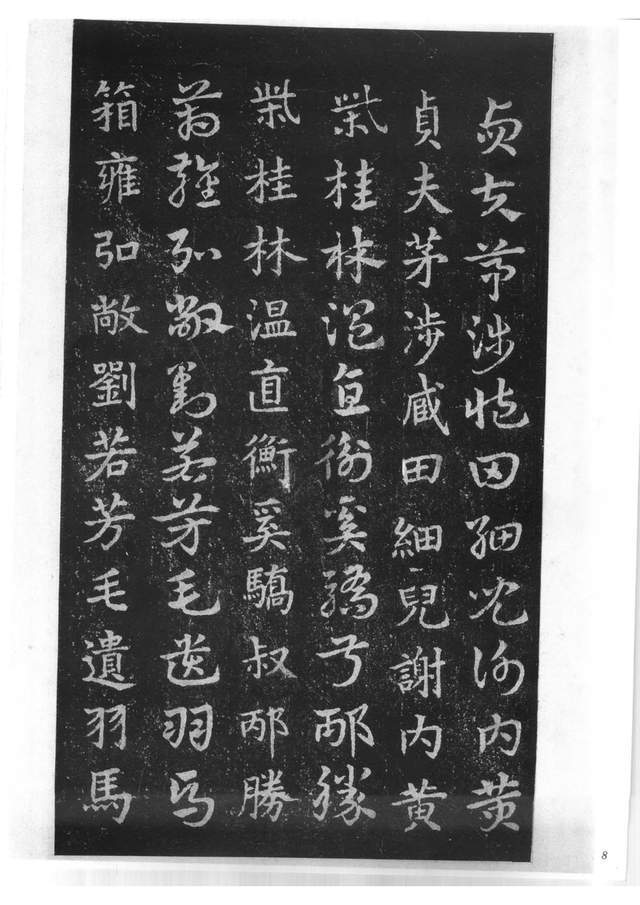 貞夫茅涉臧田細兒謝内黃
貞夫茅涉臧田細兒謝内黃
柴桂林温直衡奚驕叔邴勝
柴桂林温直衡奚驕叔邴勝
箱雍弘敞劉若芳毛遺羽馬
箱雍弘敞劉若芳毛遺羽馬
8